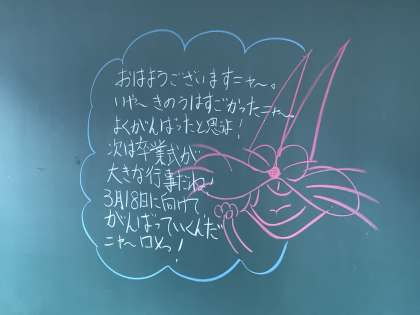 おはようございますニャ〜。
いや〜きのうはすごかったニャ〜。
よくがんばったと思うよ！
次は卒業式が
大きな行事だね〜
3月18日に向けて
がんばっていくんだ
ニャ〜ロメっ！